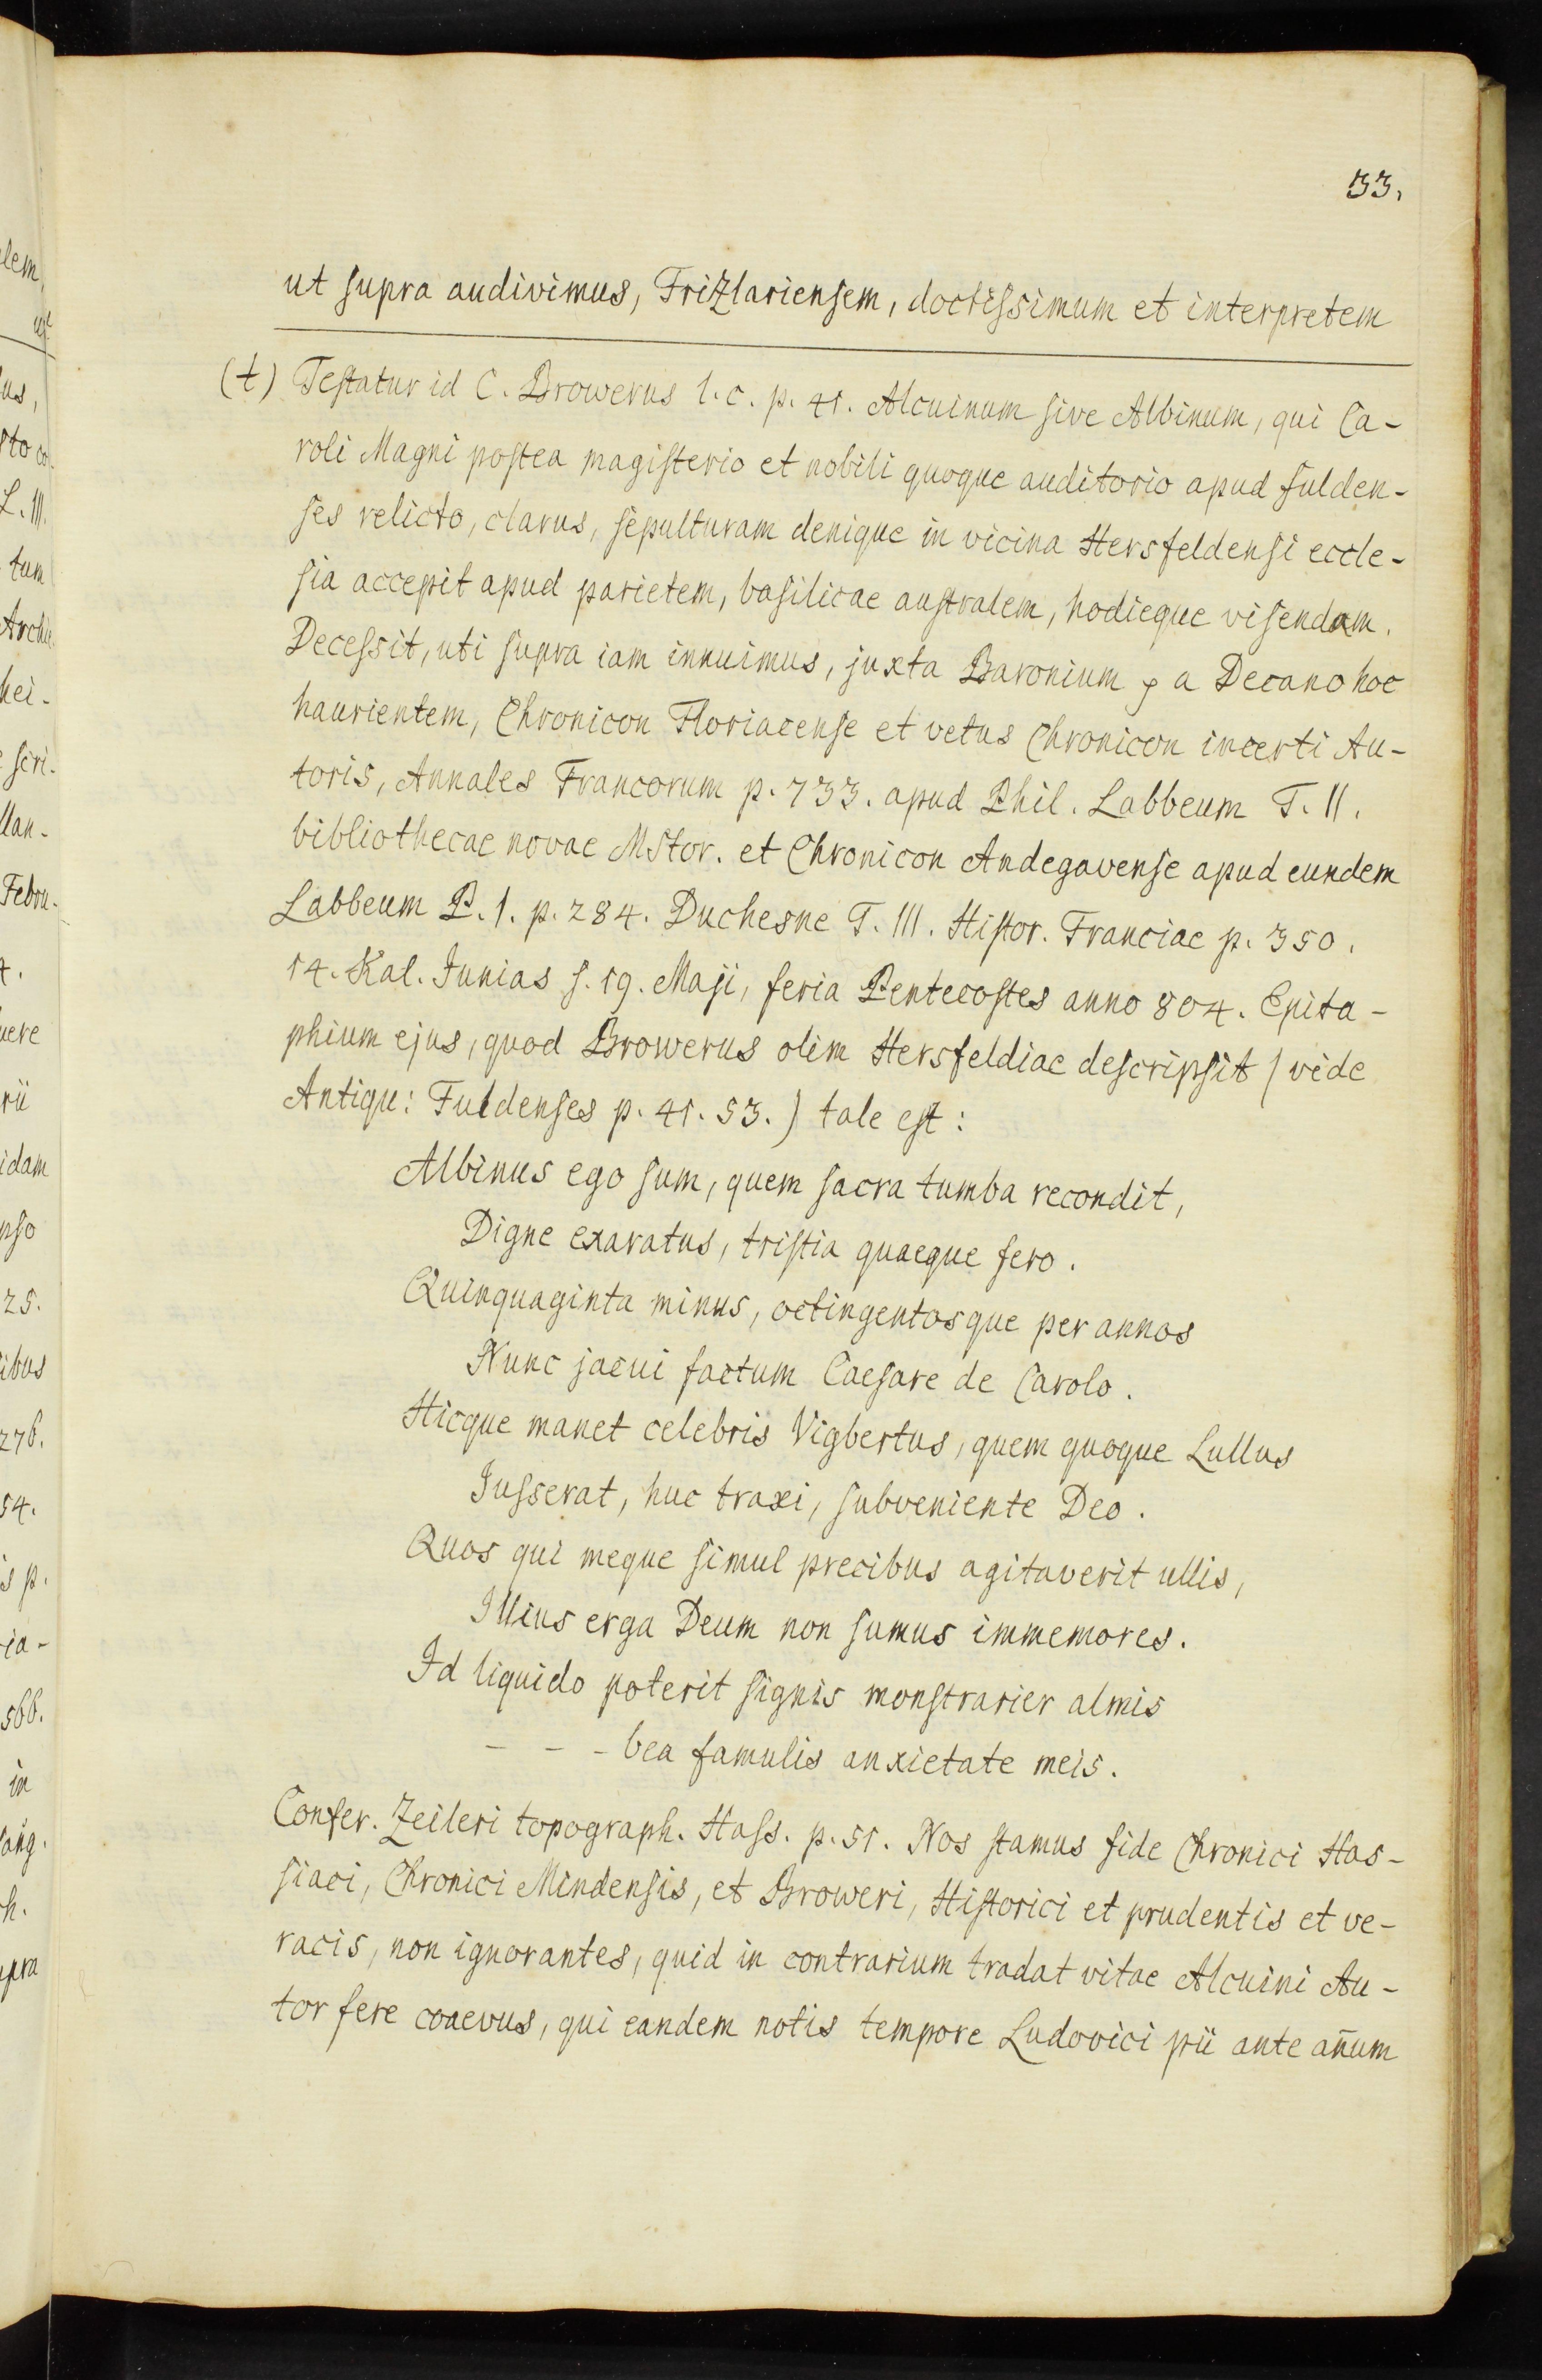 33.
ut supra audivimus, Frizlariensem, doctissimum et interpretem
(t) Testatur id C. Browerus l. c. p. 41. Alcuinum sive Albinum, qui Ca-
roli Magni postea magisterio et nobili quoque auditorio apud fulden-
ses relicto, clarus, sepulturam denique in vicina Hersfeldensi eccle-
sia accepit apud parietem, basilicae australem, hodieque visendam.
Decessit, uti supra iam innuimus, juxta Baronium a Decano hoc
haurientem, Chronicon Floriacense et vetus Chronicon incerti Au-
toris, Annales Francorum p. 733. apud Phil. Labbeum T. II.
bibliothecae novae MStor. et Chronicon Andegavense apud eundem
Labbeum P. 1. p. 284. Duchesne T. III. Histor. Franciae p. 350.
14. Kal. Junias s. 19. Maji, feria Pentecostes anno 804. Epita-
phium ejus, quod Browerus olim Hersfeldiae descripsit (vide
Antiqu: Fuldenses p. 41. 53.) tale est:
Albinus ego sum, quem sacra tumba recondit,
Digne exaratus, tristia quaeque fero.
Quinquaginta minus, octingentosque per annos
Nunc jacui factum Caesare de Carolo.
Hicque manet celebris Vigbertus, quem quoque Lullus
Jusserat, huc traxi, subveniente Deo.
Quos qui meque simul precibus agitaverit ullis,
Illius erga Deum non sumus immemores.
Id liquido poterit signis monstrarier almis
- - - bea famulis anxietate meis.
Confer. Zeileri topograph. Hass. p. 51. Nos stamus fide Chronici Has-
siaci, Chronici Mindensis, et Broweri, Historici et prudentis et ve-
racis, non ignorantes, quid in contrarium tradat vitae Alcuini Au-
tor fere coaevus, qui eandem notis tempore Ludovici pii ante an̄um